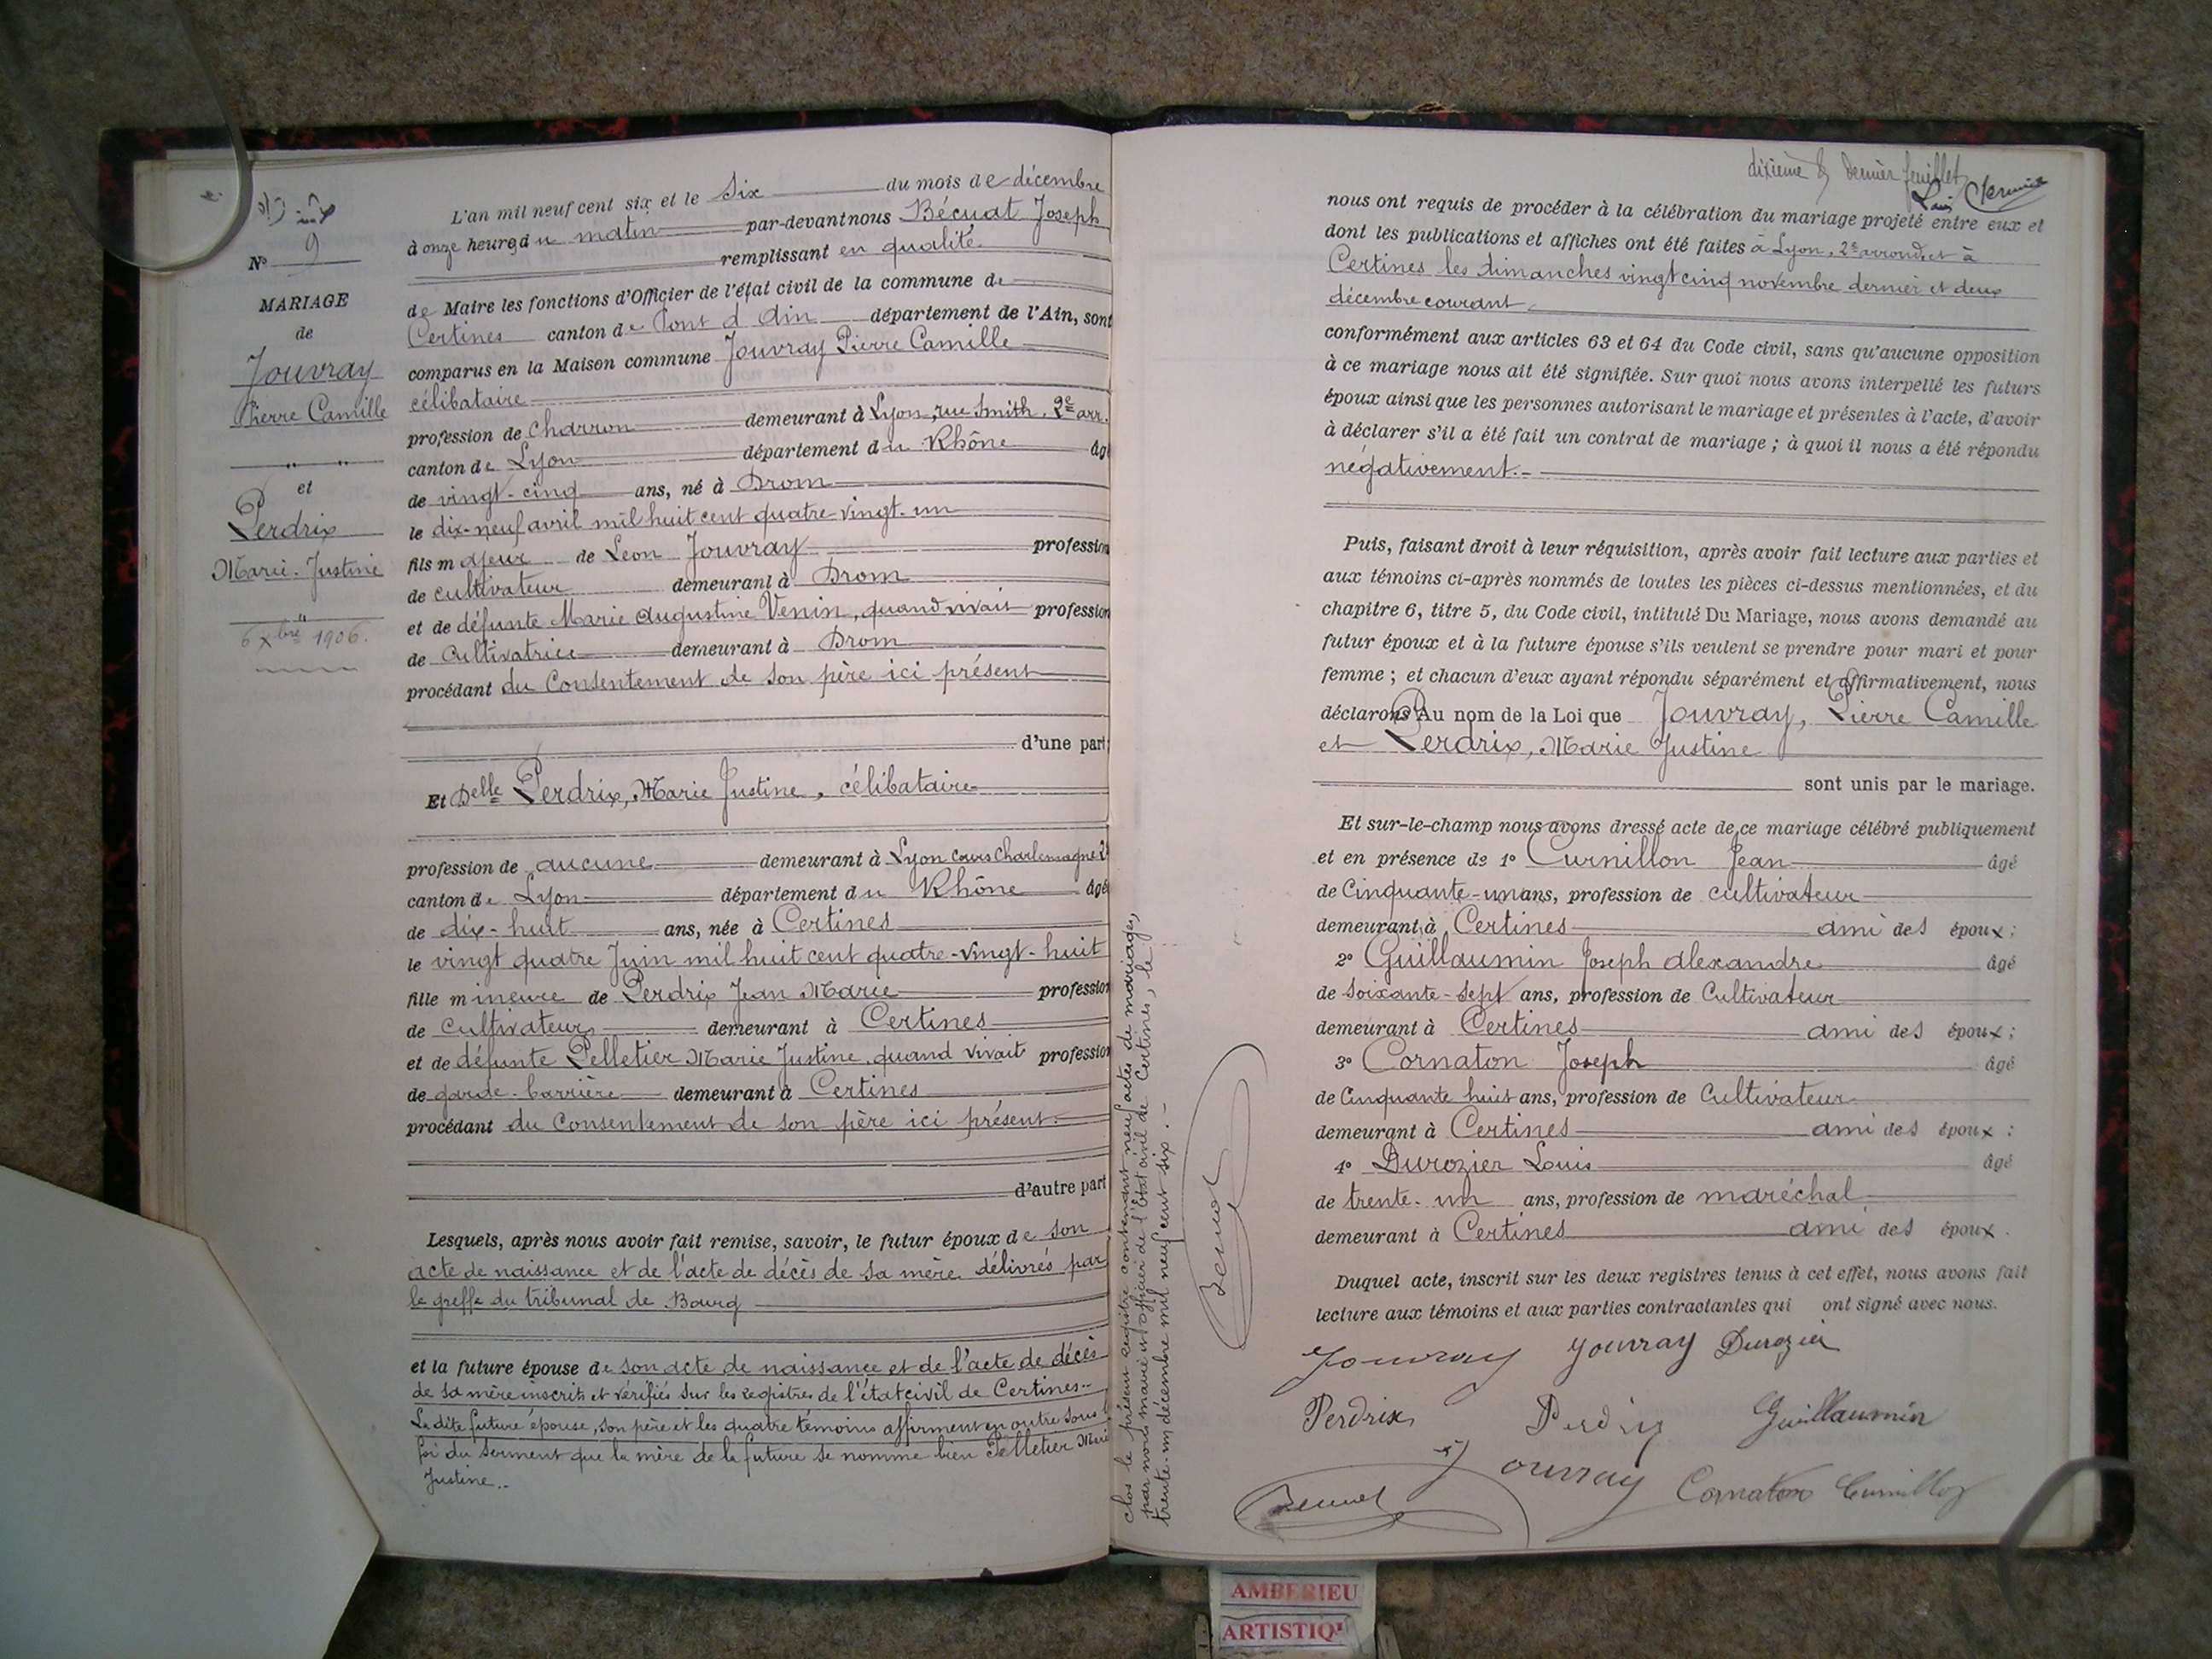 Nº 9
MARIAGE
de
Jouvray
Pierre Camille
et
Perdrix
Marie-Justine
6 Xbre 1906.
L'an mil neuf cent six et le Six du mois de décembre
à onze heures du matin par-devant nous Bécuat Joseph
remplissant en qualité
de Maire les fonctions d'Officier de l'état civil de la commune de
Certines canton de Pont d Ain département de l'Ain, sont
comparus en la Maison commune Jouvray Pierre Camille
célibataire
profession de charron demeurant à Lyon, rue Smith, 2e arr.
canton de Lyon département du Rhône âgé
de vingt-cinq ans, né à Drom
le dix-neuf avril mil huit cent quatre-vingt-un
fils majeur de Léon Jouvray profession
de cultivateur demeurant à Drom
et de défunte Marie Augustine Venin, quand vivait profession
de Cultivatrice demeurant à Drom
procédant du Consentement de son père ici présent
d'une part
Et Delle Perdrix, Marie Justine, célibataire
profession de aucune demeurant à Lyon cours Charlemagne 2
canton de Lyon département du Rhône âgé
de dix-huit ans, née à Certines
le vingt quatre Juin mil huit cent quatre-vingt-huit
fille mineure de Perdrix Jean Marie profession
de Cultivateur demeurant à Certines
et de défunte Pelletier Marie Justine, quand vivait profession
de garde-barrière demeurant à Certines
procédant du Consentement de son père ici présent.
d'autre part
Lesquels, après nous avoir fait remise, savoir, le futur époux de son
acte de naissance et de l'acte de décès de sa mère délivrés par
le greffe du tribunal de Bourg
et la future épouse de son acte de naissance et de l'acte de décès
de sa mère inscrits et vérifiés sur les registres de l'état civil de Certines..
La dite future épouse, son père et les quatre témoins affirment en outre sous
foi du serment que la mère de la future se nomme bien Pelletier Marie
Justine..
clos le présent registre contenant neuf actes de mariages,
par nous maire et officier de l'état civil de Certines, le
trente-un décembre mil neuf cent six.-
Bécuat
dixième & dernier feuillet
nous ont requis de procéder à la célébration du mariage projeté entre eux et
dont les publications et affiches ont été faites à Lyon, 2e arrond. et à
Certines les dimanches vingt cinq novembre dernier et deux
décembre courant
conformément aux articles 63 et 64 du Code civil, sans qu'aucune opposition
à ce mariage nous ait été signifiée. Sur quoi nous avons interpellé les futurs
époux ainsi que les personnes autorisant le mariage et présentes à l'acte, d'avoir
à déclarer s'il a été fait un contrat de mariage ; à quoi il nous a été répondu
négativement.
Puis, faisant droit à leur réquisition, après avoir fait lecture aux parties et
aux témoins ci-après nommés de toutes les pièces ci-dessus mentionnées, et du
chapitre 6, titre 5, du Code civil, intitulé Du Mariage, nous avons demandé au
futur époux et à la future épouse s'ils veulent se prendre pour mari et pour
femme ; et chacun d'eux ayant répondu séparément et affirmativement, nous
déclarons Au nom de la Loi que Jouvray, Pierre Camille
et Perdrix, Marie Justine
sont unis par le mariage.
Et sur-le-champ nous avons dressé acte de ce mariage célébré publiquement
et en présence de 1º Curnillon Jean âgé
de Cinquante-un ans, profession de cultivateur
demeurant à Certines ami des époux ;
2º Guillaumin Joseph Alexandre âgé
de Soixante-sept ans, profession de Cultivateur
demeurant à Certines ami des époux ;
3º Cornaton Joseph âgé
de Cinquante huit ans, profession de Cultivateur
demeurant à Certines ami des époux ;
4º Durozier Louis âgé
de trente-un ans, profession de maréchal
demeurant à Certines ami des époux.
Duquel acte, inscrit sur les deux registres tenus à cet effet, nous avons fait
lecture aux témoins et aux parties contractantes qui ont signé avec nous.
Jouvray Jouvray Durozier
Perdrix Perdrix Guillaumin
Jouvray Cornaton Curnillon
Bécuat
AMBERIEU
ARTISTIQ